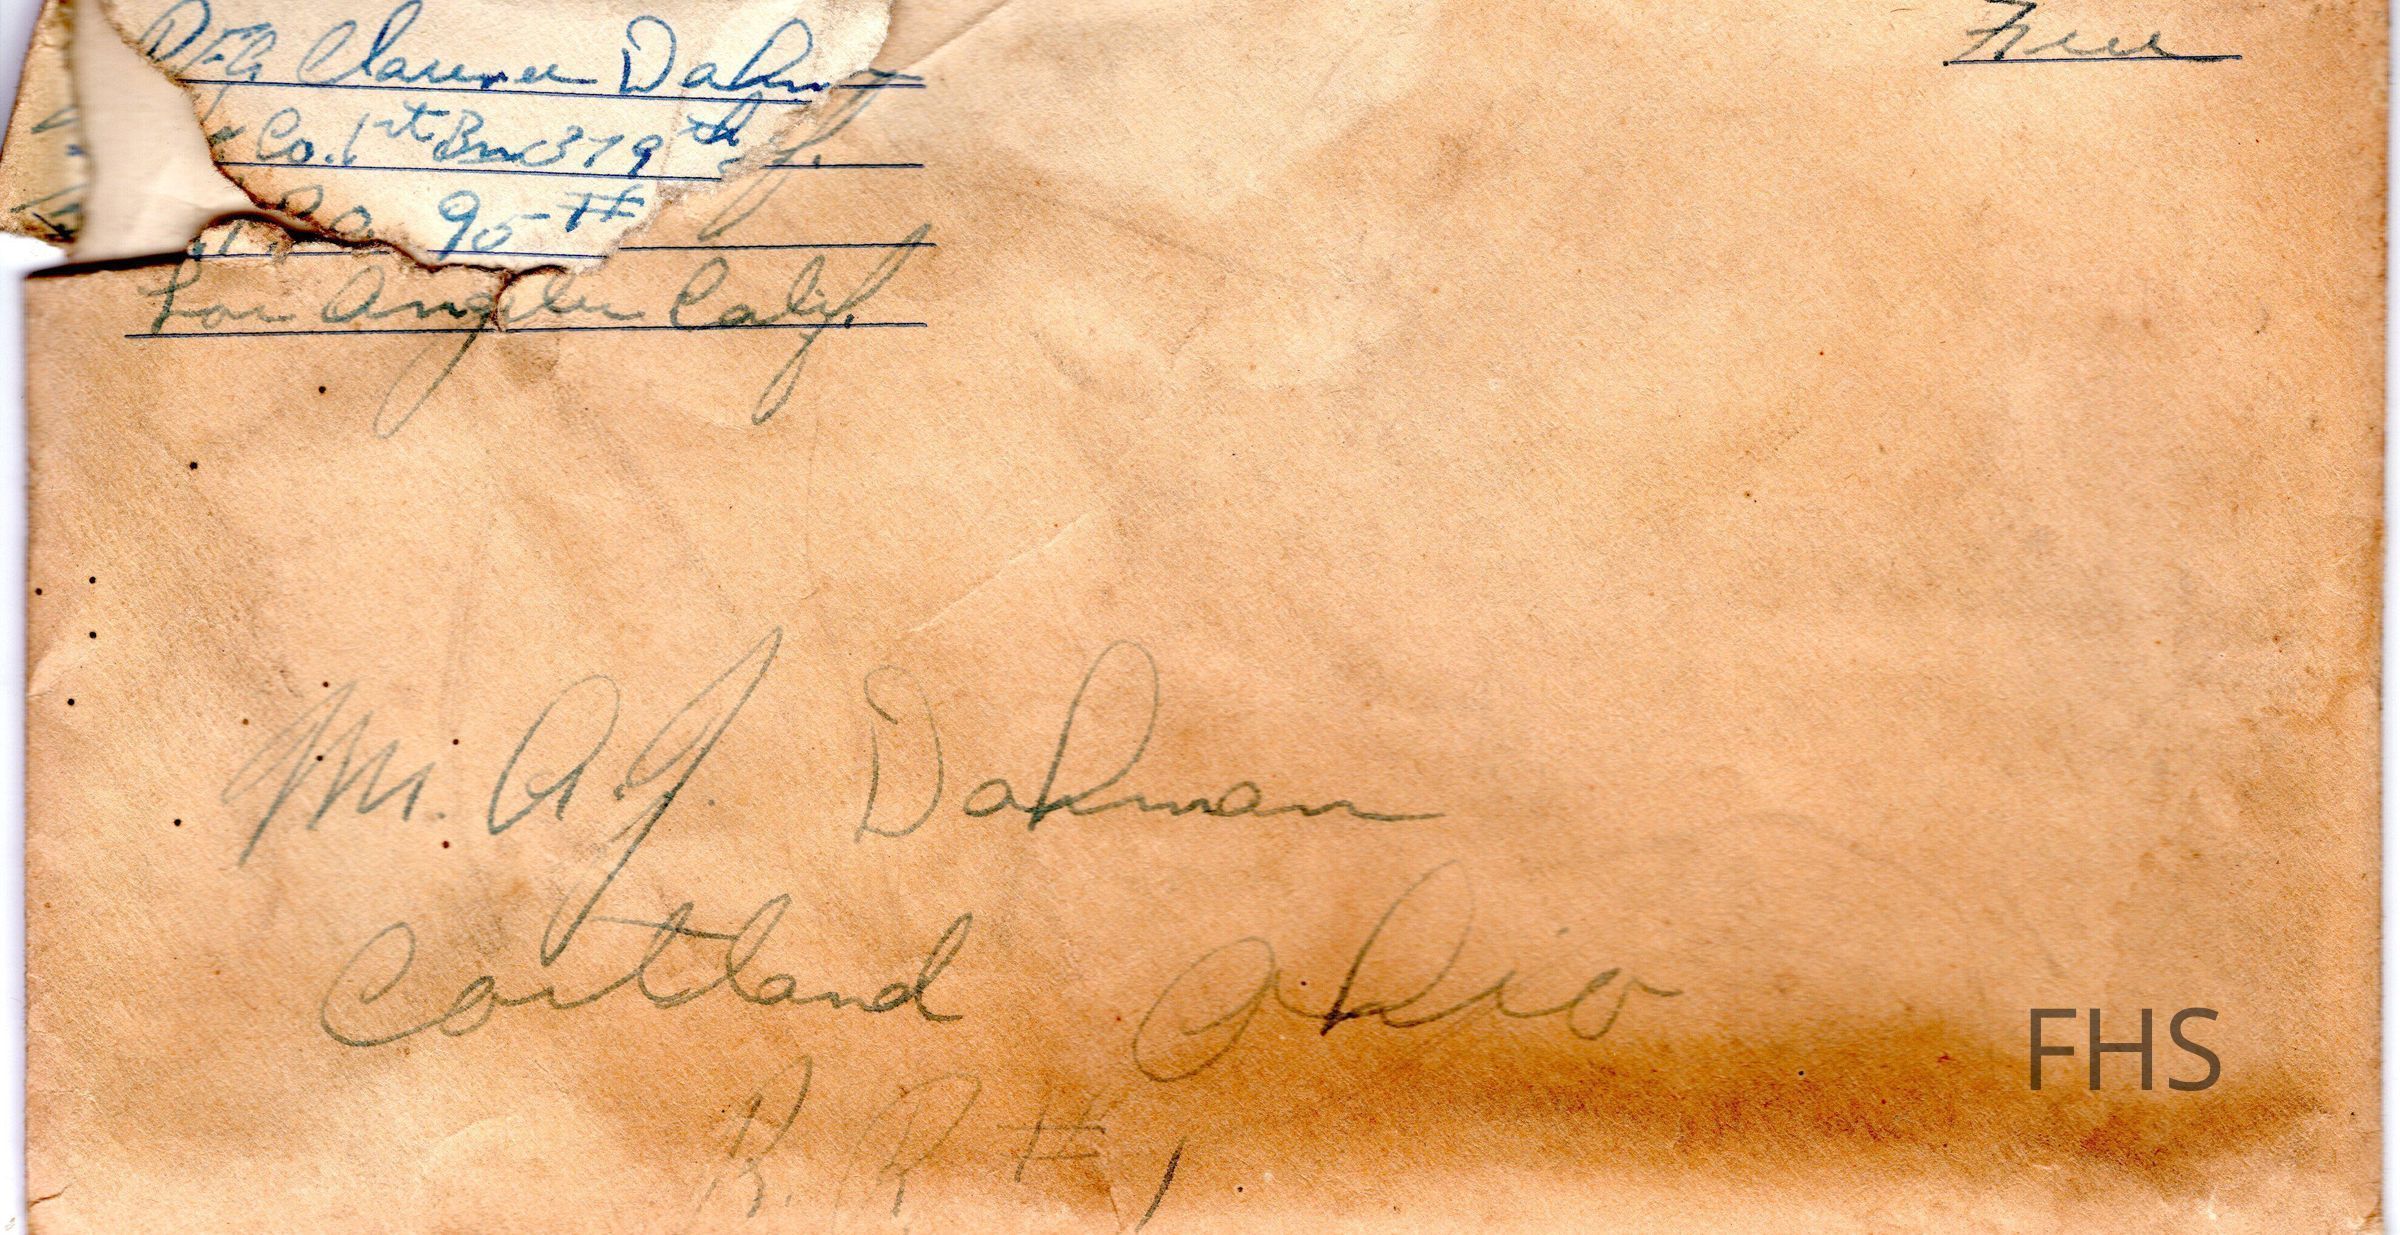 Free
Pfc Clarence Dahm
Co. 1st Bn 379th
95 #
Los Angeles Calif.
Mr. A. J. Dahman
Cortland Ohio
R. R # 1
FHS